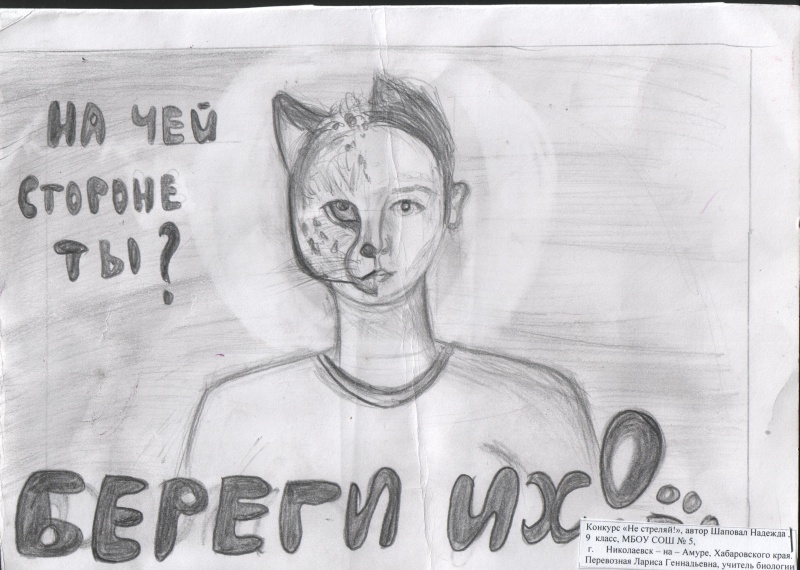 НА ЧЕЙ
СТОРОНЕ
ТЫ?
БЕРЕГИ ИХ!..
Конкурс «Не стреляй!», автор Шаповал Надежда ,
9 класс, МБОУ СОШ № 5,
г. Николаевск – на – Амуре, Хабаровского края.
Перевозная Лариса Геннадьевна, учитель биологии